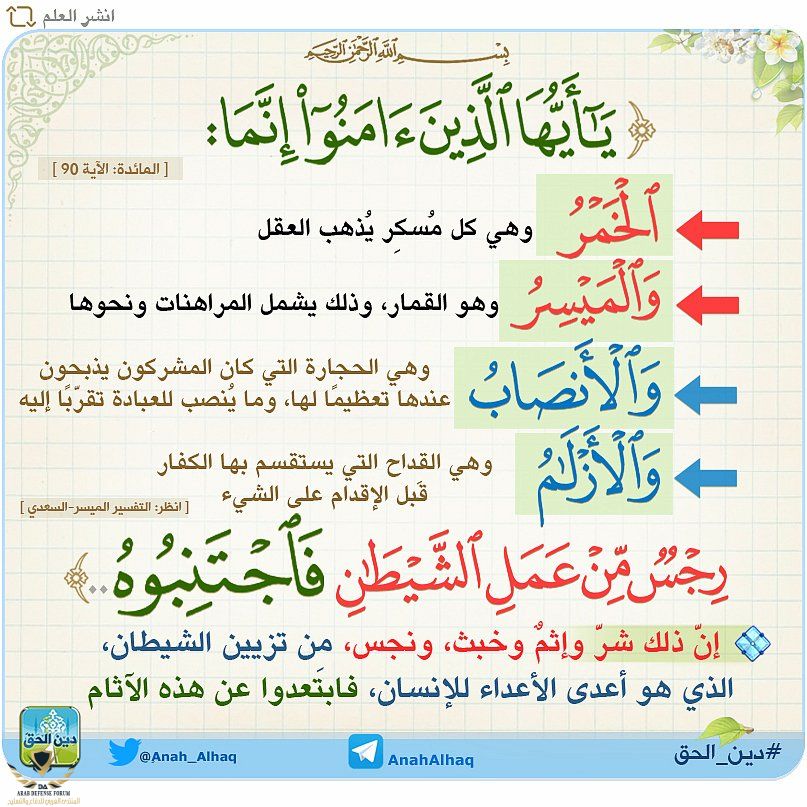 انشر العلم
بِسْمِ اللَّهِ الرَّحْمَنِ الرَّحِيمِ
﴿ يَـٰٓأَيُّهَا ٱلَّذِينَ ءَامَنُوٓا۟ إِنَّمَا:
[ المائدة: الآية 90 ]
ٱلْخَمْرُ وهي كل مُسكِر يُذهب العقل
وَٱلْمَيْسِرُ وهو القمار، وذلك يشمل المراهنات ونحوها
وَٱلْأَنصَابُ وهي الحجارة التي كان المشركون يذبحون
عندها تعظيمًا لها، وما يُنصب للعبادة تقرّبًا إليه
وَٱلْأَزْلَـٰمُ وهي القداح التي يستقسم بها الكفار
قَبل الإقدام على الشيء
[ انظر: التفسير الميسر-السعدي ]
رِجْسٌ مِّنْ عَمَلِ ٱلشَّيْطَـٰنِ فَٱجْتَنِبُوهُ.. ﴾
إنّ ذلك شرّ وإثمٌ وخبث، ونجس، مِن تزيين الشيطان،
الذي هو أعدى الأعداء للإنسان، فابتعدوا عن هذه الآثام
#دين_الحق
AnahAlhaq
@Anah_Alhaq
دين الحق
DA
ARAB DEFENSE FORUM
المنتدى العربي للدفاع والتسليح